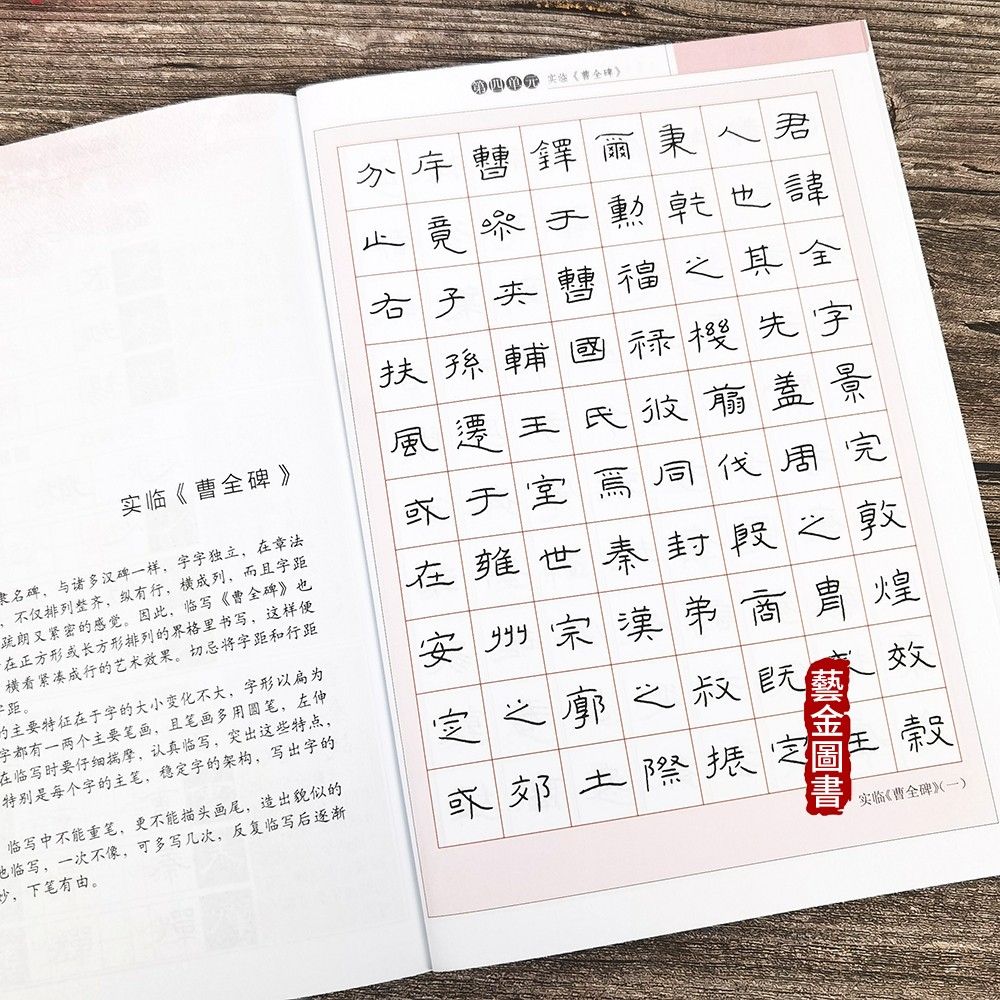 实临《曹全碑》
隶名碑，与诸多汉碑一样，字字独立，在章法
，不仅排列整齐，纵有行，横成列，而且字距
疏朗又紧密的感觉。因此，临写《曹全碑》也
在正方形或长方形排列的界格里书写，这样便
横看紧凑成行的艺术效果。切忌将字距和行距
字距。
的主要特征在于字的大小变化不大，字形以扁为
字都有一两个主要笔画，且笔画多用圆笔，左伸
在临写时要仔细揣摩，认真临写，突出这些特点，
特别是每个字的主笔，稳定字的架构，写出字的
临写中不能重笔，更不能描头画尾，造出貌似的
地临写，一次不像，可多写几次，反复临写后逐渐
妙，下笔有由。
第四单元 实临《曹全碑》
君諱全字景完敦煌效穀
人也其先蓋周之胄王
秉乾之機翦伐殷商既定
爾勳福祿攸同封弟叔振
鐸于曹國氏焉秦漢之際
曹參夾輔王室世宗廓土
斥竟子孫遷于雍州之郊
分止右扶風或在安定或
实临《曹全碑》(一)
藝金圖書